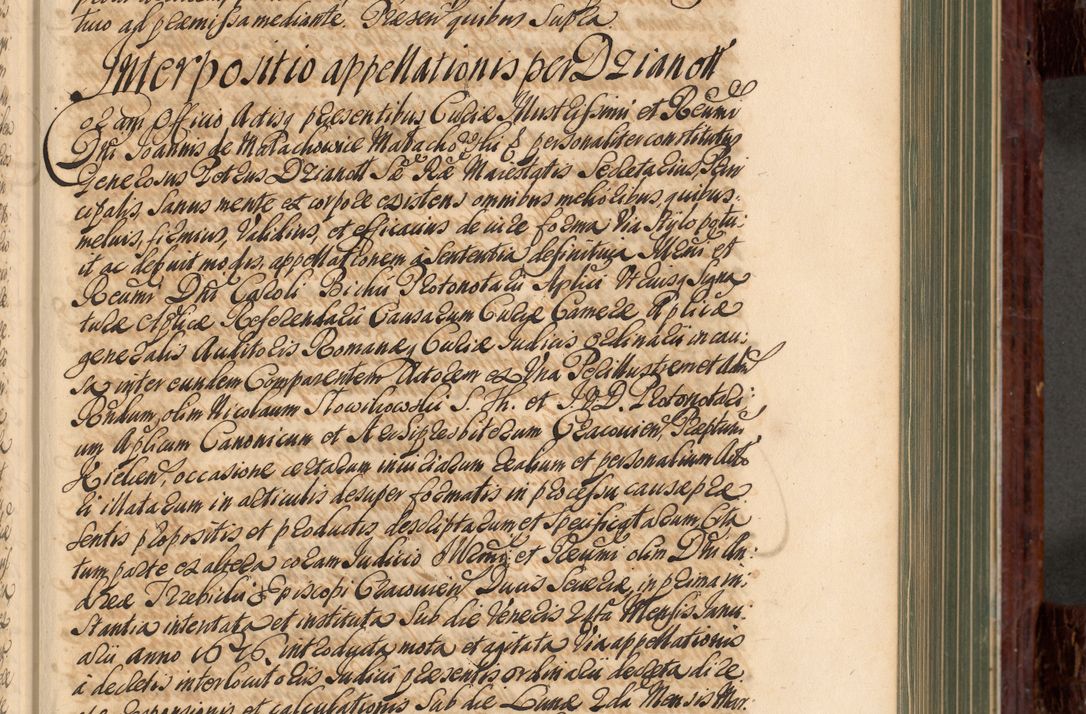 tuo ad praemissa mediante. Praesen quibus Supra
Interpositio appellationis per Dzianott
Coram Officio Actisq praesentibus Curiae Illustrissimi et Reumi
Dni Joannis de Małachowice Małachowski E personaliter constitutus
Generosus Petrus Dzianott Sae Rae Maiestatis Secretarius, Prin
cipalis, sanus mente et corpore existens omnibus melioribus, quibus
melius, firmius, validius, et efficacius de iure forma via stylo potu:
it ac debuit modis, appellationem a sententia definitiva Illmi et
Reumi Dni Caroli Bichii Protonotarii Aplici Utriusq Signa
turae Aplicae Referendarii Causarum Curiae Camerae Aplicae
generalis Auditoris Romanaeq Curiae Iudicis ordinarii in cau:
sa inter eundem Comparentem Actorem ex Una Perillustrem et Adm
Rndum olim Nicolaum Słowikowski S. Th. et I.V.D. Protonotari:
um Aplicum Canonicum et Archipresbiterum Cracovien, Praeptum
Kielcen, occasione certarum iniuriarum realium et personalium Acto
ri illatarum in articulis desuper formatis in processu causae prae
sentis propositis et productis descriptarum et specificatarum Cita
tum parte ex altera coram Iudicio Illmi et Reumi olim Dni An:
dreae Trzebicki Episcopi Cracovien Ducis Severiae, in prima in:
stantia intentata et instituta Sub die Veneris 24ta Mensis Janu:
arii anno 1676. introducta mota et agitata Via appellationis
a decretis interlocutoriis Iudicii praesentis ordinarii decreta dire
et calculationis Sub die Lunae 2da Mensis Mar: